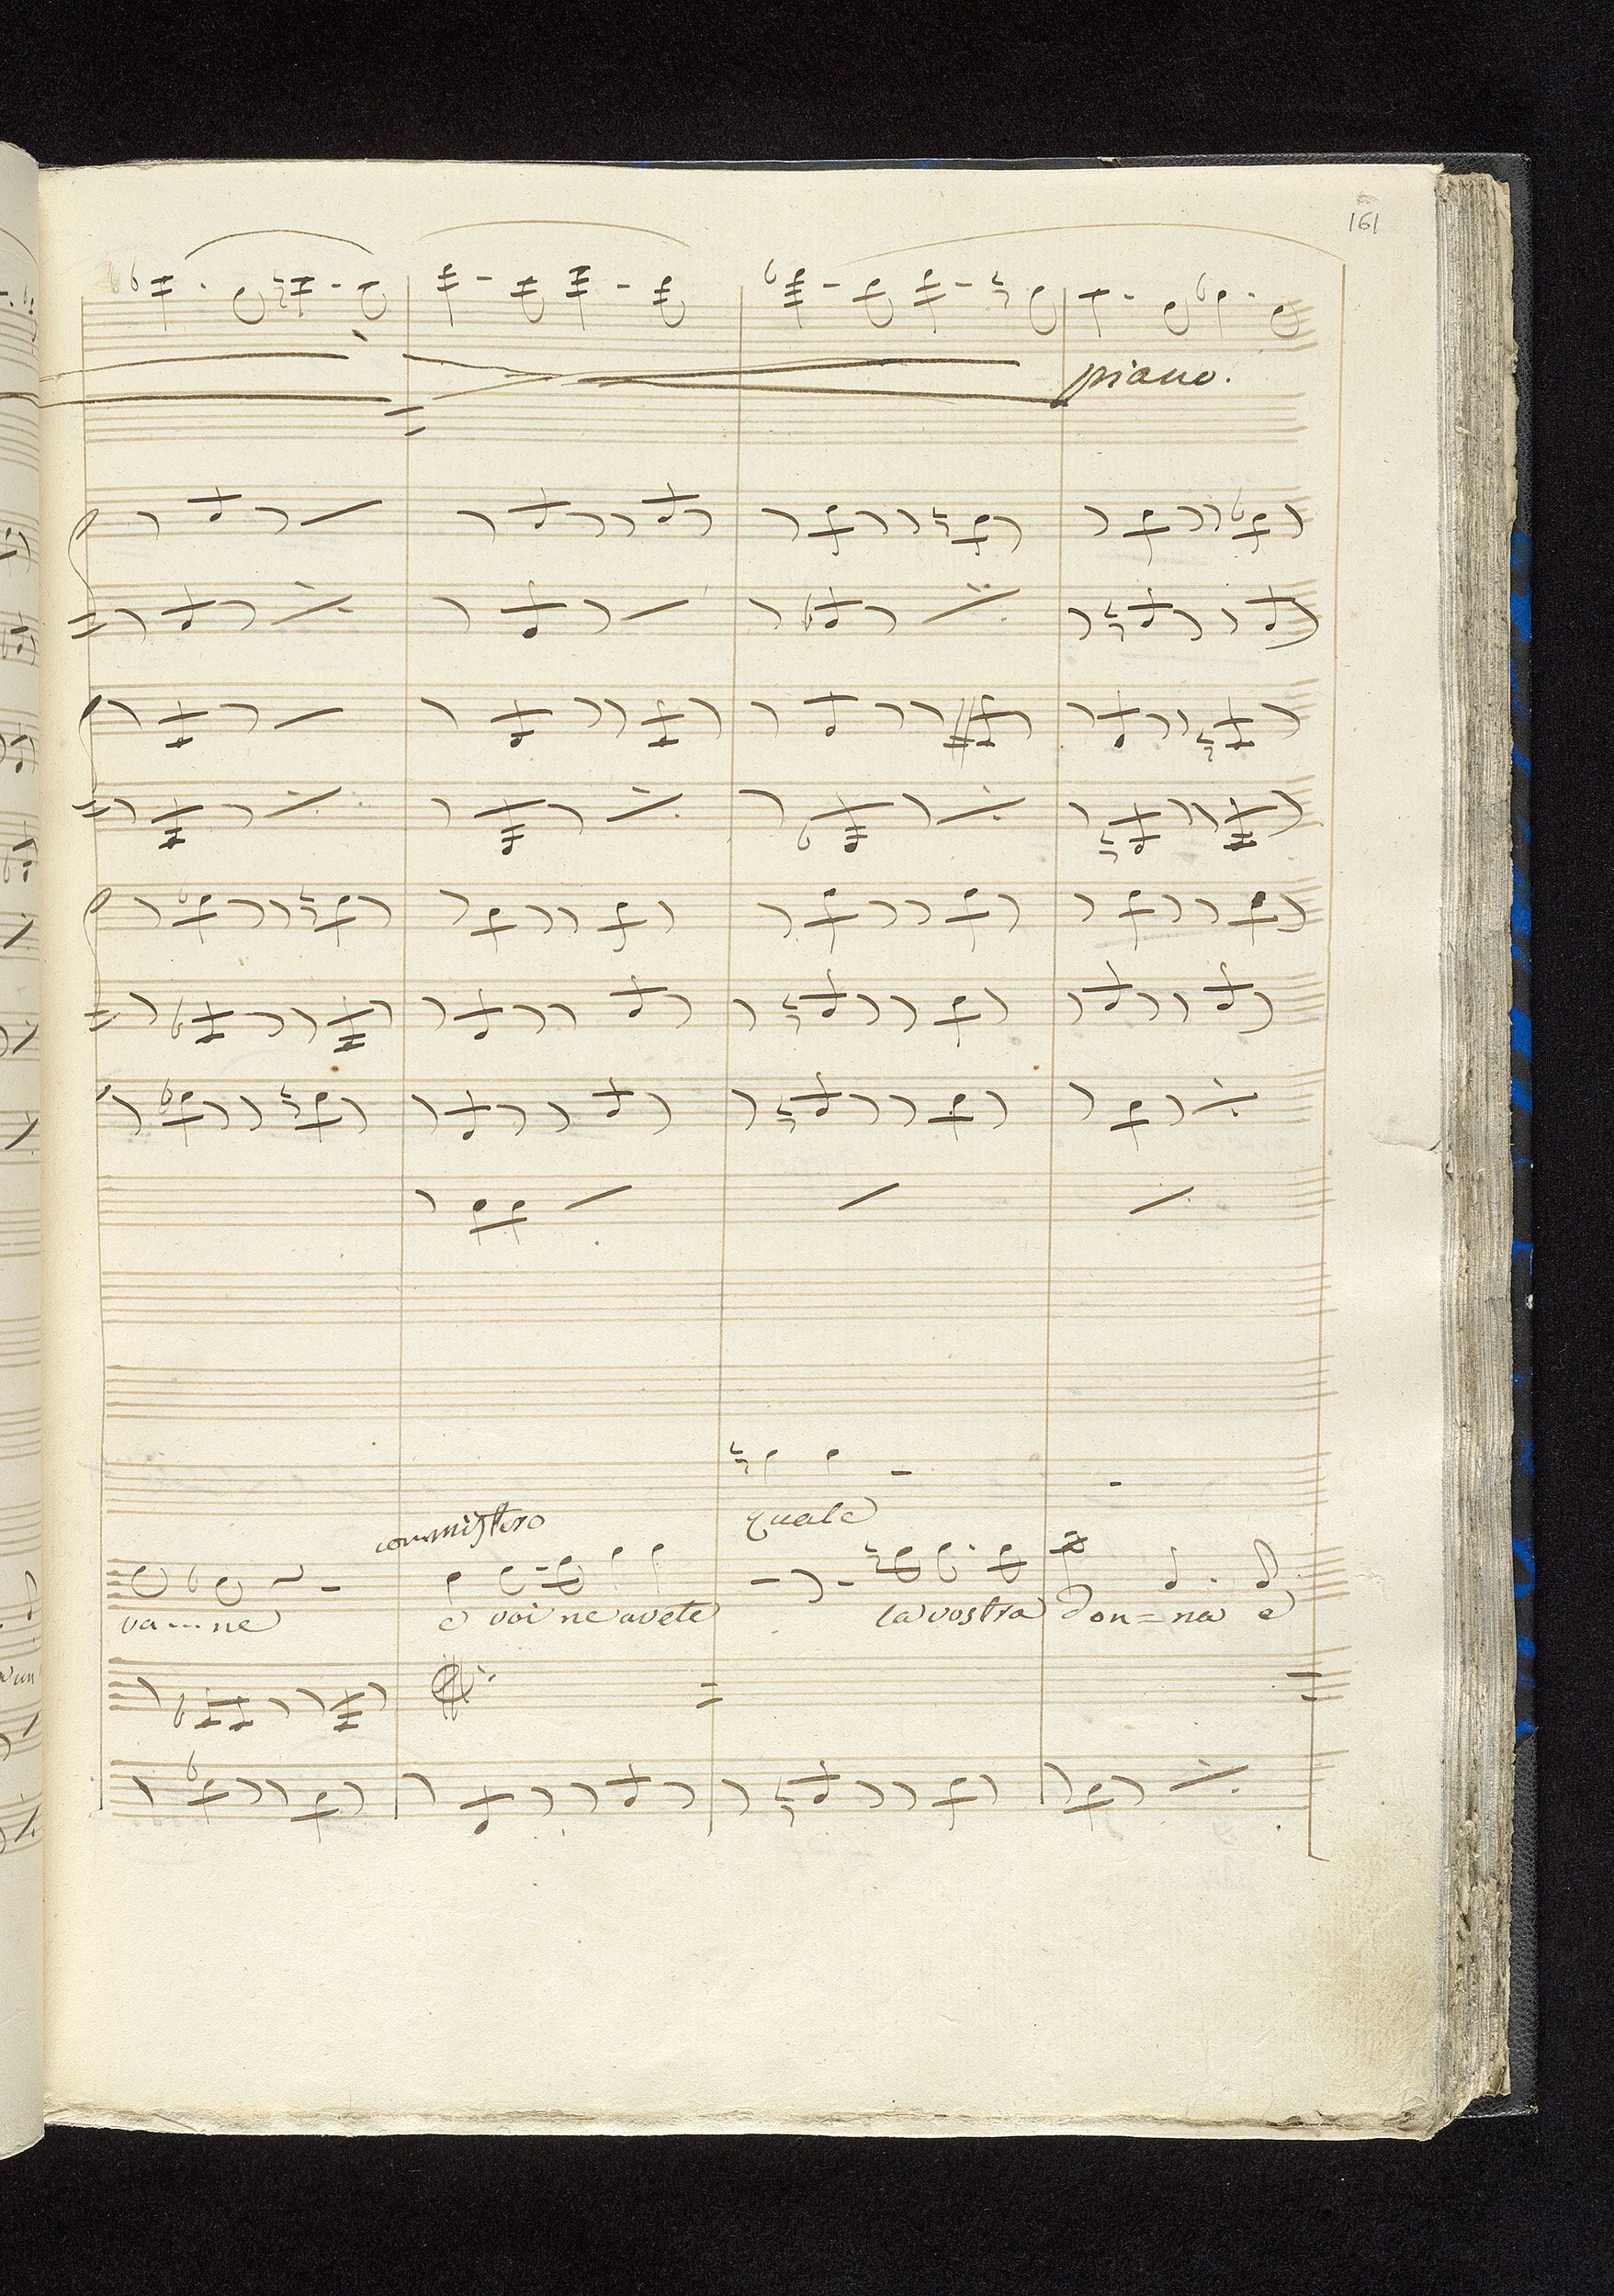 161
piano.
con mistero
quale
va....ne e voi ne avete la vostra don=na e
un